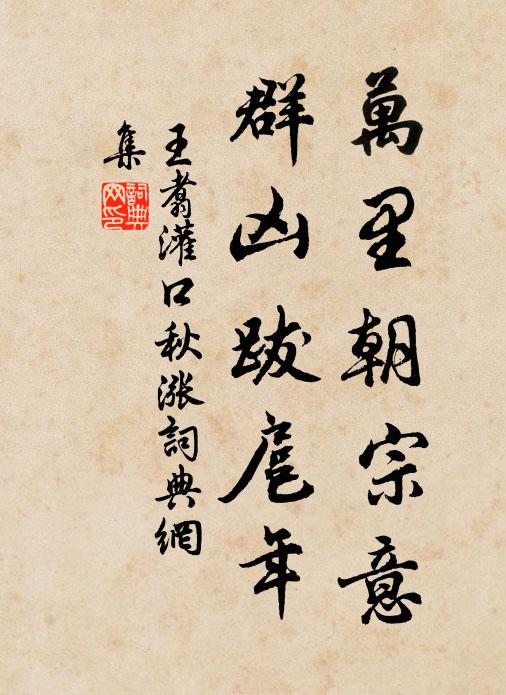 萬里朝宗意
群凶跋扈年
王翥灌口秋漲詞典網
集
詞典
网印